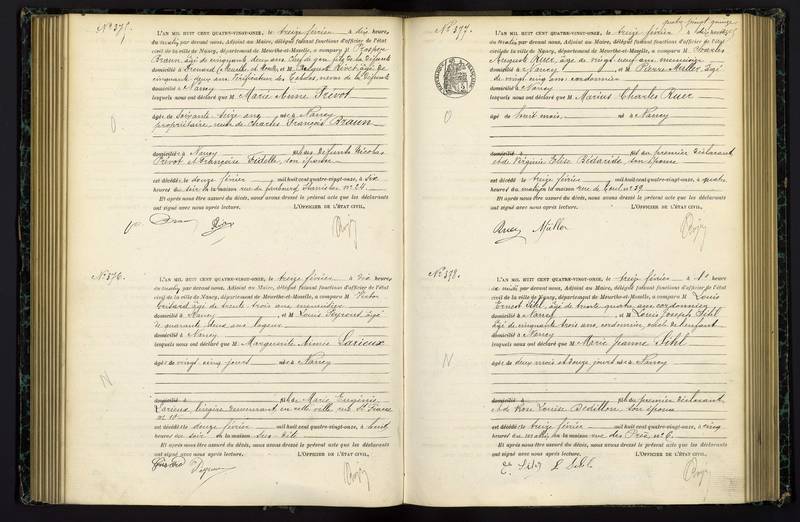 No 375.
L'AN MIL HUIT CENT QUATRE-VINGT-ONZE, le treize février à dix heures
du matin, par devant nous, Adjoint au Maire, délégué faisant fonctions d'officier de l'état
civil de la ville de Nancy, département de Meurthe-et-Moselle, a comparu M. Prosper
Braun, âgé de cinquante deux ans
domicilié à et M. Auguste Rivot, âgé de
cinquante deux ans, Vérificateur des Tabacs, neveu de la défunte
domicilié à Nancy
lesquels nous ont déclaré que M Marie Anne Prévot
âgée de soixante seize ans née à Nancy
propriétaire, veuve de Charles François Braun
domiciliée à Nancy fille des défunts Nicolas
Prévot et Françoise Fidelle, son épouse
est décédée le douze février mil huit cent quatre-vingt-onze, à six
heures du soir en la maison rue du faubourg Stanislas no 24.
Et après nous être assuré du décès, nous avons dressé le présent acte que les déclarants
ont signé avec nous après lecture. L'OFFICIER DE L'ÉTAT CIVIL,
No 376.
L'AN MIL HUIT CENT QUATRE-VINGT-ONZE, le treize février à dix heures
du matin, par devant nous, Adjoint au Maire, délégué faisant fonctions d'officier de l'état
civil de la ville de Nancy, département de Meurthe-et-Moselle, a comparu M. Victor
âgé de trente trois ans
domicilié à Nancy et M. Louis âgé
de quarante deux ans
domicilié à Nancy
lesquels nous ont déclaré que M Marguerite Aimée Larieux
âgée de vingt cinq jours née à Nancy
domicilié à fille de Marie Eugénie
Larieux, lingère demeurant en cette ville, rue St
no 10
est décédée le douze février mil huit cent quatre-vingt-onze, à huit
heures du soir en la maison
Et après nous être assuré du décès, nous avons dressé le présent acte que les déclarants
ont signé avec nous après lecture. L'OFFICIER DE L'ÉTAT CIVIL,
No 377.
L'AN MIL HUIT CENT QUATRE-VINGT-ONZE, le treize février à
du matin, par devant nous, Adjoint au Maire, délégué faisant fonctions d'officier de l'état
civil de la ville de Nancy, département de Meurthe-et-Moselle, a comparu M. Charles
Auguste Ruer, âgé de vingt neuf ans, menuisier
domicilié à Nancy et M. Pierre Müller, âgé
de vingt cinq ans, cordonnier
domicilié à Nancy
lesquels nous ont déclaré que M Marius Charles Ruer
âgé de huit mois né à Nancy
domicilié à fils du premier déclarant
et de Virginie Elise Bédaride, son épouse
est décédé le treize février mil huit cent quatre-vingt-onze, à quatre
heures du matin en la maison rue de Toul no 39
Et après nous être assuré du décès, nous avons dressé le présent acte que les déclarants
ont signé avec nous après lecture. L'OFFICIER DE L'ÉTAT CIVIL,
Ruer Müller
No 378.
L'AN MIL HUIT CENT QUATRE-VINGT-ONZE, le treize février à
de midi par devant nous, Adjoint au Maire, délégué faisant fonctions d'officier de l'état
civil de la ville de Nancy, département de Meurthe-et-Moselle, a comparu M. Louis
Ernest Sihl, âgé de trente quatre ans, cordonnier
domicilié à Nancy et M. Louis Joseph Sihl
âgé de cinquante trois ans, cordonnier, oncle de l'enfant
domicilié à Nancy
lesquels nous ont déclaré que M Marie Jeanne Sihl
âgée de deux mois et douze jours née à Nancy
domicilié à fille du premier déclarant
et de Rose Louise Bédillon, son épouse
est décédée le treize février mil huit cent quatre-vingt-onze, à cinq
heures du matin en la maison rue des Prés no 6.
Et après nous être assuré du décès, nous avons dressé le présent acte que les déclarants
ont signé avec nous après lecture. L'OFFICIER DE L'ÉTAT CIVIL,